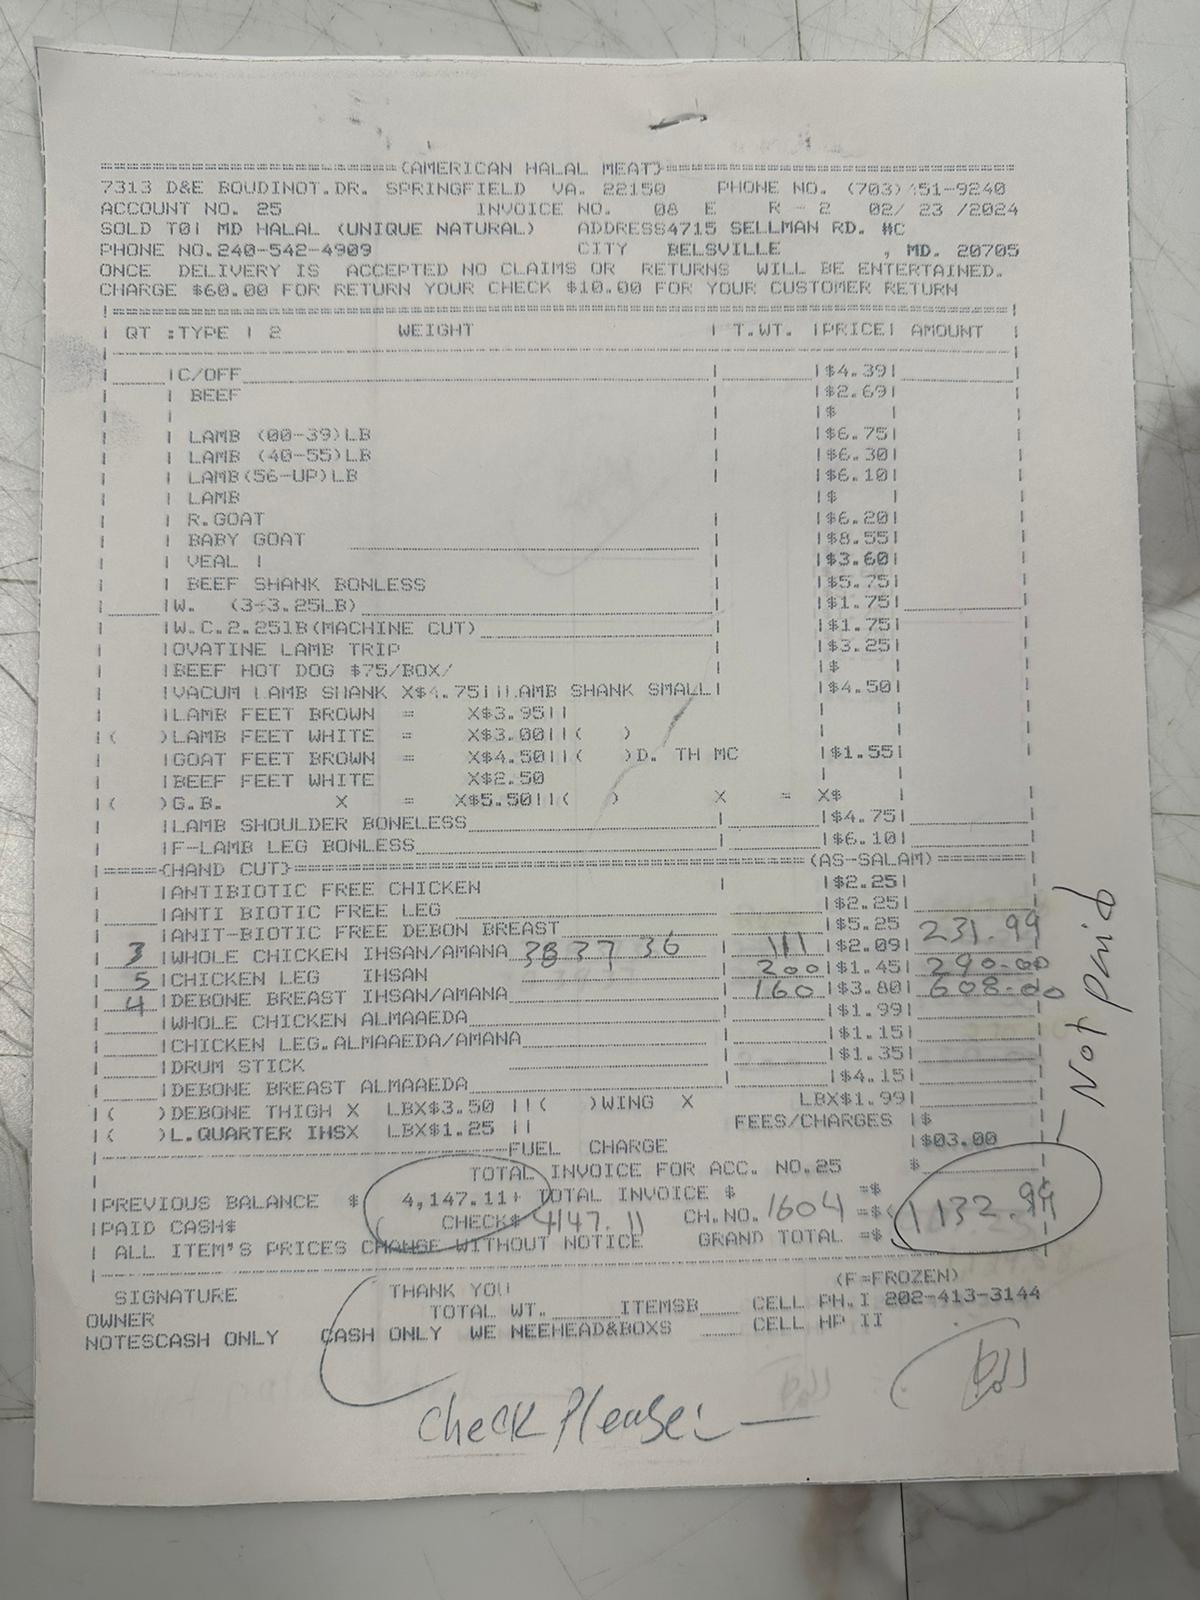 ================================(AMERICAN HALAL MEAT)================================
7313 D&E BOUDINOT.DR. SPRINGFIELD VA. 22150 PHONE NO. (703) 451-9240
ACCOUNT NO. 25 INVOICE NO. 08 E R - 2 02/ 23 /2024
SOLD TO: MD HALAL (UNIQUE NATURAL) ADDRESS4715 SELLMAN RD. #C
PHONE NO.240-542-4909 CITY BELSVILLE , MD. 20705
ONCE DELIVERY IS ACCEPTED NO CLAIMS OR RETURNS WILL BE ENTERTAINED.
CHARGE $60.00 FOR RETURN YOUR CHECK $10.00 FOR YOUR CUSTOMER RETURN
| QT :TYPE | 2 WEIGHT | T.WT. |PRICE| AMOUNT
|C/OFF | |$4.39|
| BEEF |$2.69|
| | |$ |
| LAMB (00-39)LB |$6.75|
| LAMB (40-55)LB |$6.30|
| LAMB(56-UP)LB |$6.10|
| LAMB |$ |
| R.GOAT |$6.20|
| BABY GOAT |$8.55|
| VEAL | |$3.60|
| BEEF SHANK BONLESS |$5.75|
|W. (3-3.25LB) |$1.75|
|W.C.2.25lB(MACHINE CUT) |$1.75|
|OVATINE LAMB TRIP |$3.25|
|BEEF HOT DOG $75/BOX/ |$ |
|VACUM LAMB SHANK X$4.75||LAMB SHANK SMALL| |$4.50|
|LAMB FEET BROWN = X$3.95||
|( )LAMB FEET WHITE = X$3.00||( )
|GOAT FEET BROWN = X$4.50||( )D. TH MC |$1.55|
|BEEF FEET WHITE X$2.50
|( )G.B. X = X$5.50||( ) X = X$ |
|LAMB SHOULDER BONELESS |$4.75|
|F-LAMB LEG BONLESS |$6.10|
|====(HAND CUT)==================================================(AS-SALAM)========|
|ANTIBIOTIC FREE CHICKEN |$2.25|
|ANTI BIOTIC FREE LEG |$2.25|
|ANIT-BIOTIC FREE DEBON BREAST |$5.25
3 |WHOLE CHICKEN IHSAN/AMANA 38 37 36 111 |$2.09| 231.99
5 |CHICKEN LEG IHSAN 200 |$1.45| 290.00
4 |DEBONE BREAST IHSAN/AMANA 160 |$3.80| 608.00
|WHOLE CHICKEN ALMAAEDA |$1.99|
|CHICKEN LEG.ALMAAEDA/AMANA |$1.15|
|DRUM STICK |$1.35|
|DEBONE BREAST ALMAAEDA |$4.15|
|( )DEBONE THIGH X LBX$3.50 ||( )WING X LBX$1.99|
|( )L.QUARTER IHSX LBX$1.25 || FEES/CHARGES |$
FUEL CHARGE |$03.00
TOTAL INVOICE FOR ACC. NO.25 $
|PREVIOUS BALANCE $ 4,147.11+ TOTAL INVOICE $ =$
|PAID CASH$ CHECK$ 4147.11 CH.NO. 1604 =$ 1132.99
| ALL ITEM'S PRICES CHANGE WITHOUT NOTICE GRAND TOTAL =$
Not paid
SIGNATURE THANK YOU (F=FROZEN)
OWNER TOTAL WT. ITEMSB CELL PH.I 202-413-3144
NOTESCASH ONLY CASH ONLY WE NEEHEAD&BOXS CELL HP II
Check Please: